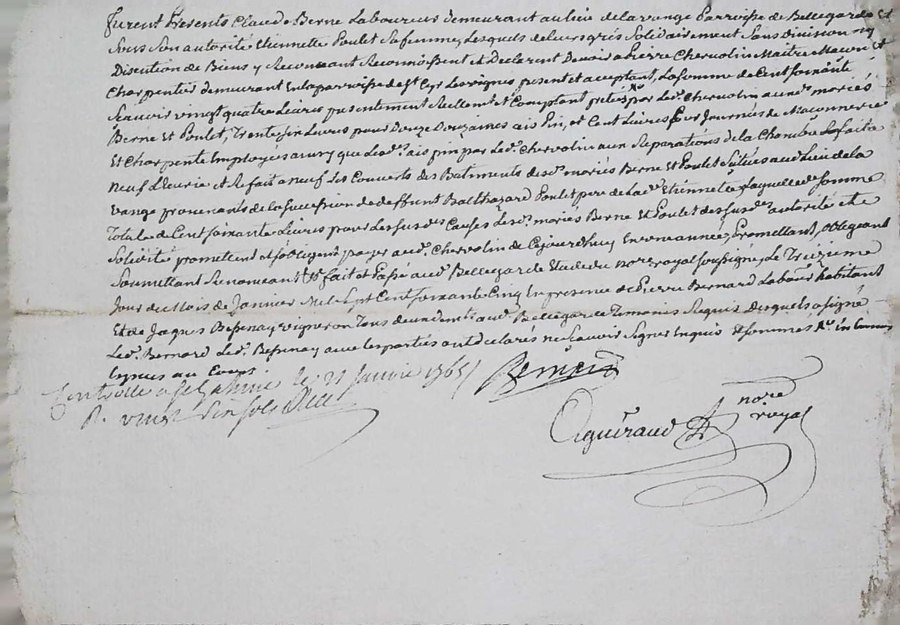 furent Presents Claude Berne Laboureur demeurant au lieu de la vange Parroisse de Bellegarde Et
sous son autorité Etiennette Poulet sa femme, Lesquels de leurs grés Solidairement Sans Division ny
Discution de Biens y Renonceant Reconnoissent et Declerent Devoir a Pierre Chervolin Maitre Macon et
Charpentier demeurant En la parroisse de St Cyr Les vignes present et acceptant, La somme de Cent soixante
Scavoir vingt quatre Livres presentement Reellemt et Comptant pretés par Led. Chervolin aux d. mariés
Berne et Poulet, Trente six Livres pour Douze Douzaines ais Pin, et Cent Livres pour Journées de Maconnerie
Et Charpente Employes que Lesd. ais pin par Led. Chervolin aux Reparations de la Chambre La faita
neuf Ecurie et Refait a neuf Les Couverts des Batiments desd. mariés Berne et Poulet Situés aud. Lieu de la
vange provenants de la succession de deffunt Balthazard Poulet pere de lad. Etiennette Laquelle de somme
Totale de Cent soixante Livres pour Les susd. Causes Lesd. mariés Berne et Poulet des susd. autorité et
Solidité promettent et s'obligent payer aud. Chervolin de Cejourdhuy En une année, Promettant, obligeant
Soumettant Renonceant fait et Passé aud. Bellegarde Etude du nore royal soussigné, Le Treizieme
Jour du Mois de Janvier Mil Sept Cent soixante Cinq En presence de Pierre Bernard Labour habitant
Et de Jaques Bessenay vigneron Tous deux aud. Bellegarde Temoins Requis Desquels a signé
Led. Bernard Led. Bessenay avec les parties ont declarés ne Scavoir Signer Enquis Et sommés
Controllé a St Galmier le 21 Janvier 1765
R. vingt six sols
Bernard
nore
royal